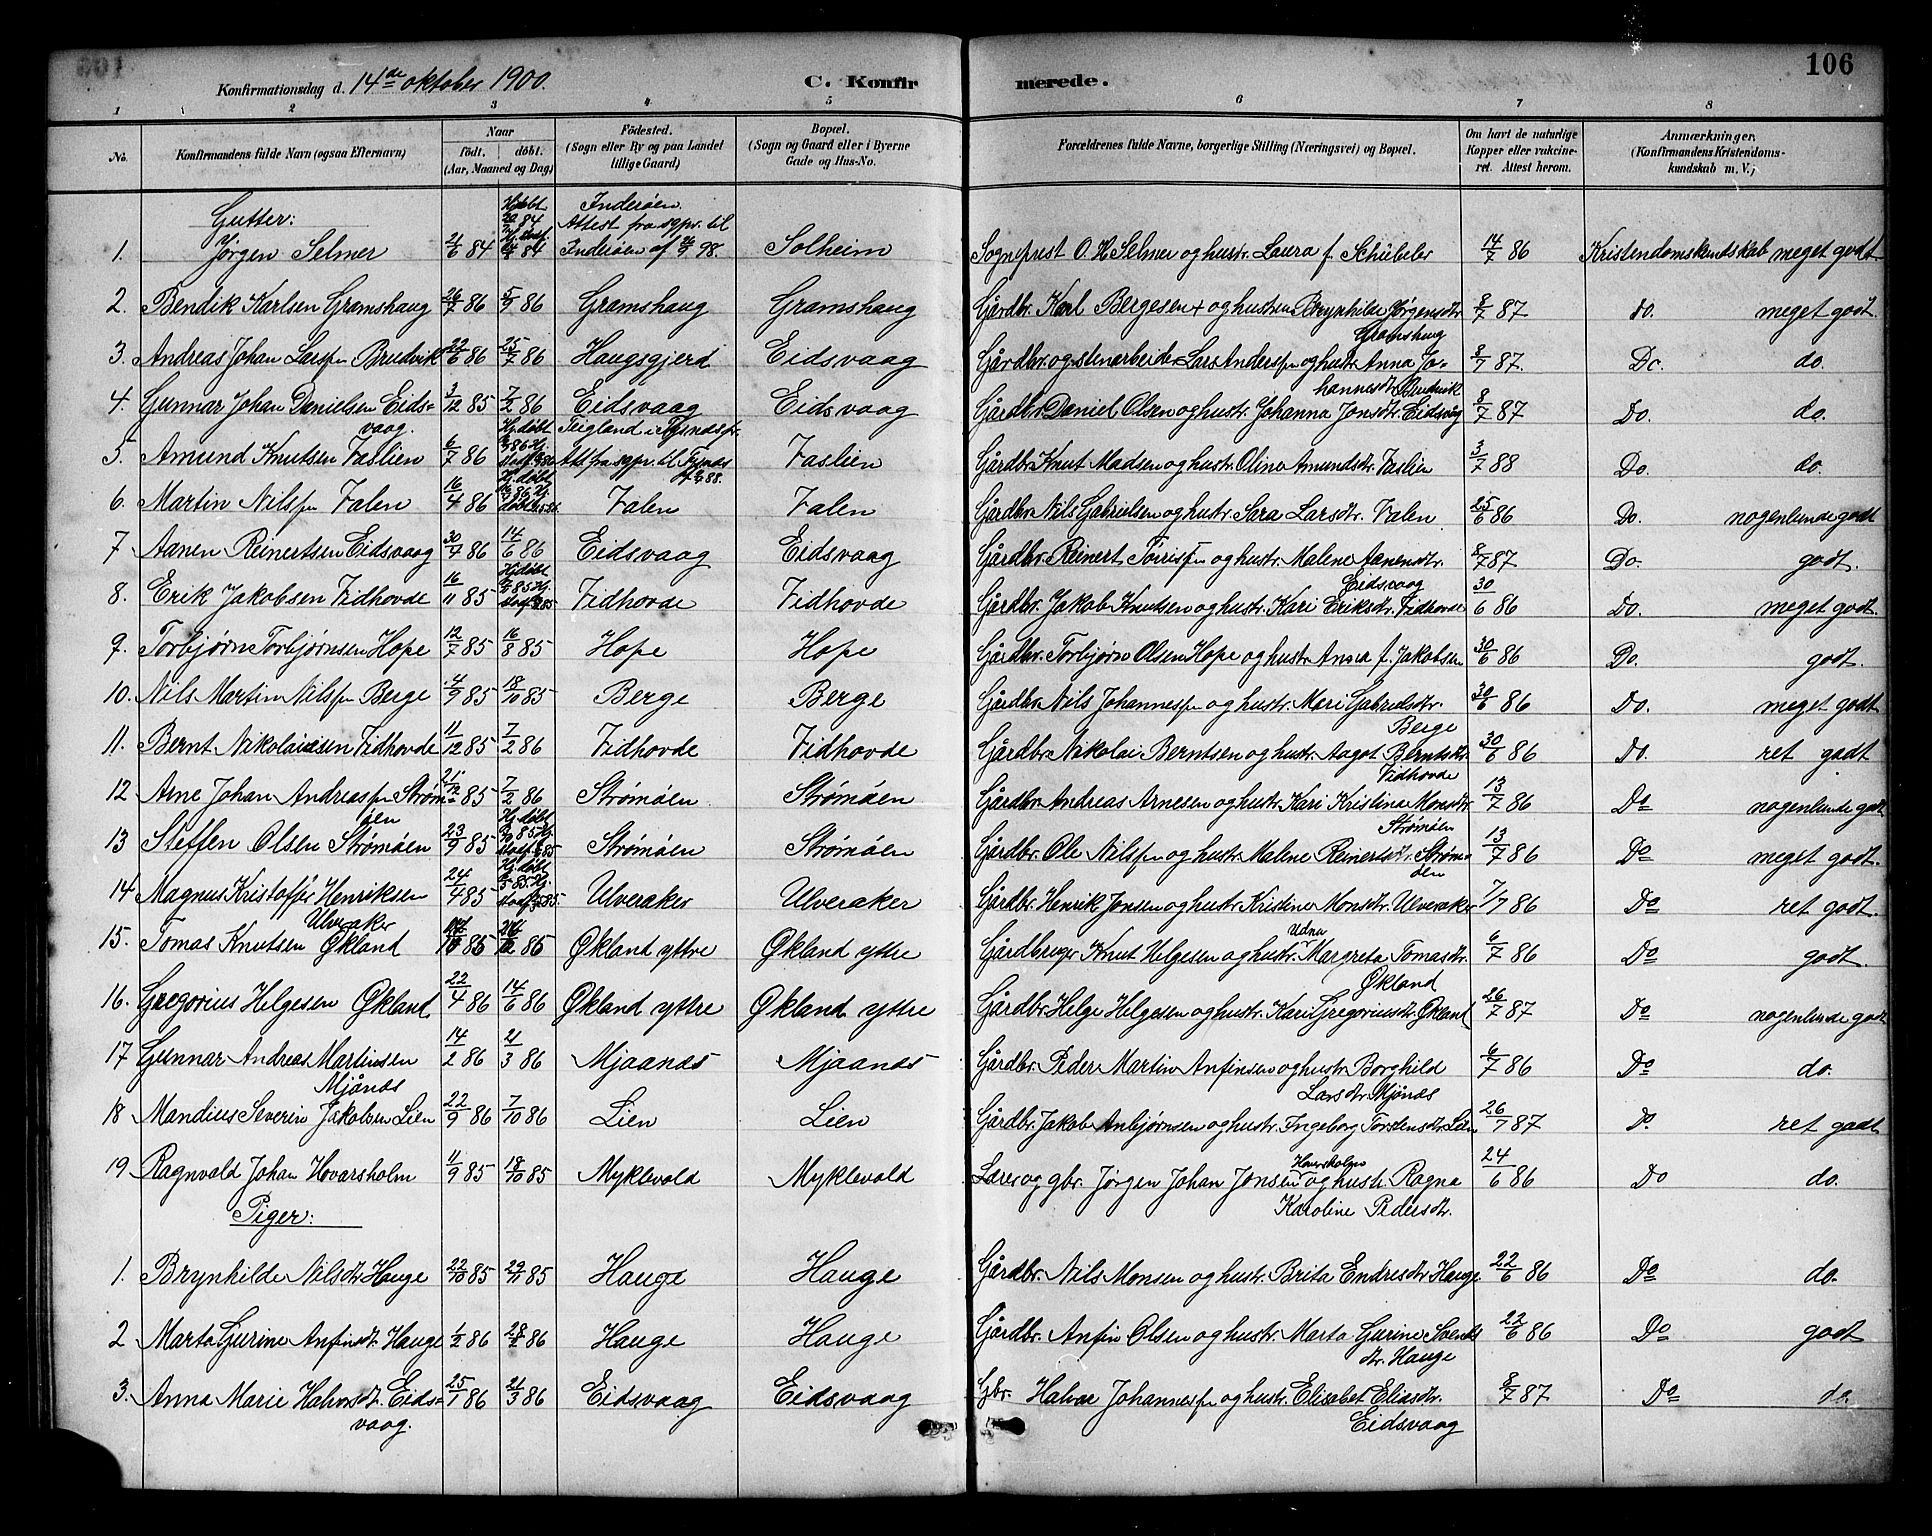 106
Konfirmationsdag d. 14de oktober 1900.
C. Konfirmerede.
1 2 3 4 5 6 7 8
No. Konfirmandens fulde Navn (ogsaa Efternavn) Naar født, døbt. (Aar, Maaned og Dag) Fødested. (Sogn eller By og paa Landet tillige Gaard) Bopæl. (Sogn og Gaard eller i Byerne Gade og Hus-No. Forældrenes fulde Navne, borgerlige Stilling (Næringsvei) og Bopæl. Om havt de naturlige Kopper eller vaccineret. Attest herom. Anmærkninger. (Konfirmandens Kristendomskundskab m. V.)
Gutter:
Inderøen.
Attest fra sgpr. til
1. Jørgen Selmer 84 84 Inderøen af 98. Solheim Sogneprest O. H. Selmer og hustr. Laura f. Schübeler 14/7 86 Kristendomskundskab meget godt
2. Bendik Karlsen Gramshaug 26/7 86 5/9 86 Gramshaug Gramshaug Gårdbr. Karl Bergesen + og hustru Brynhilde Jørgensdtr. Gramshaug 8/7 87 do. meget godt.
3. Andreas Johan Larssen Brudvik 22/6 86 25/7 86 Haugsgjerd Eidsvaag Gårdbr. og stenarbeider Lars Anderssen og hustr. Anna Johannesdtr. Brudvik 8/7 87. Do. do.
4. Gunnar Johan Danielsen Eidsvaag. 3/12 85 7/2 86 Eidsvaag Eidsvaag Gårdbr. Daniel Olsen og hustr. Johanna Jonsdtr. Eidsvåg 8/7 87 Do. do.
5. Amund Knutsen Vaslien 6/7 86 Hj.døbt Teigland i Att. fra sgpr. til Tysnæs 88. Vaslien Gårdbr. Knut Madsen og hustr. Oline Amundsdtr. Vaslien 3/7 88 Do. do.
6. Martin Nilssen Valen 16/4 86 Hj.døbt Valen Valen Gårdbr. Nils Gabrielsen og hustr. Sara Larsdtr. Valen 25/6 86 Do. nogenlunde godt
7 Aanen Reinertsen Eidsvaag 30/4 86 14/6 86 Eidsvaag Eidsvaag Gårdbr. Reinert Torrissen og hustr. Malene Aanensdtr. Eidsvaag 8/7 87 Do. godt.
8. Erik Jakobsen Vidhovde 16/11 85 Hj.døbt Vidhovde Vidhovde Gårdbr. Jakob Knutsen og hustr. Kari Eriksdtr. Vidhovde 30/6 86 Do. meget godt.
9. Torbjørn Torbjørnsen Hope 12/7 85 16/8 85 Hope Hope Gårdbr. Torbjørn Olsen Hope og hustr. Anna f. Jakobsen 30/6 86 Do. godt.
10. Nils Martin Nilssen Berge 4/9 85 18/10 85 Berge Berge Gårdbr. Nils Johannessen og hustr. Mari Gabrielsdtr. Berge 30/6 86 Do. meget godt
11. Bernt Nikolaiesen Vidhovde 11/12 85 7/2 86 Vidhovde Vidhovde Gårdbr. Nikolai Berntsen og hustr. Aagot Berntsdtr. Vidhovde 30/6 86 Do. ret godt
12 Arne Johan Andreassen Strømøen 21/12 85 7/2 86 Strømøen Strømøen Gårdbr. Andreas Arnesen og hustr. Kari Kristina Monsdtr. Strømøen 13/7 86 Do nogenlunde godt
13 Steffen Olsen Strømøen 23/9 85 Hj.døbt Strømøen Strømøen Gårdbr. Ole Nilssen og hustr. Malene Reinertsdtr. Strømøen 13/7 86 Do meget godt.
14 Magnus Kristoffer Henriksen Ulveraker 24/4 85 Hj.døbt Ulveraker Ulveraker Gårdbr. Henrik Jonsen og hustr. Kristine Monsdtr. Ulveraker 7/7 86 Do ret godt.
15. Tomas Knutsen Økland 85 85 Økland yttre Økland yttre Gårdbruger Knut Helgesen og hustr. Udna Margreta Tomasdtr. Økland 6/7 86 Do godt.
16. Gregorius Helgesen Økland 22/4 86 14/6 86 Økland yttre Økland yttre Gårdbr. Helge Helgesen og hustr. Kari Gregoriusdtr. Økland 26/7 87 Do nogenlunde godt
17 Gunnar Andreas Martinsen Mjånæs 14/2 86 21/3 86 Mjaanæs Mjaanæs Gårdbr. Peder Martin Anfinsen og hustr. Borghild Larsdtr. Mjånæs 6/7 86 Do do.
18 Mandius Severin Jakobsen Lien 22/9 86 7/10 86 Lien Lien Gårdbr. Jakob Anbjørnsen og hustr. Ingeborg Torstensdtr. Lien 26/7 87 Do. ret godt
19 Ragnvald Johan Hovarsholm 11/9 85 18/10 85 Myklevold Myklevold Lærer og gbr. Jørgen Johan Jonsen Hovarsholm og hustr. Ragna Karoline Pedersdtr. 24/6 86 Do do.
Piger:
1. Brynhilde Nilsdtr. Hauge 22/10 85 29/11 85 Hauge Hauge Gårdbr. Nils Monsen og hustr. Brita Endresdtr. Hauge 22/6 86 Do do.
2 Marta Gurine Anfinsdtr. Hauge 1/2 86 28/2 86 Hauge Hauge Gårdbr. Anfin Olsen og hustr. Marta Gurine Svendsdtr. Hauge 22/6 86 Do godt
3. Anna Marie Halvorsdtr. Eidsvaag. 25/1 86 21/3 86 Eidsvaag Eidsvaag Gbr. Halvor Johannessen og hustr. Elisabet Eliasdtr. Eidsvaag 8/7 87 Do do.